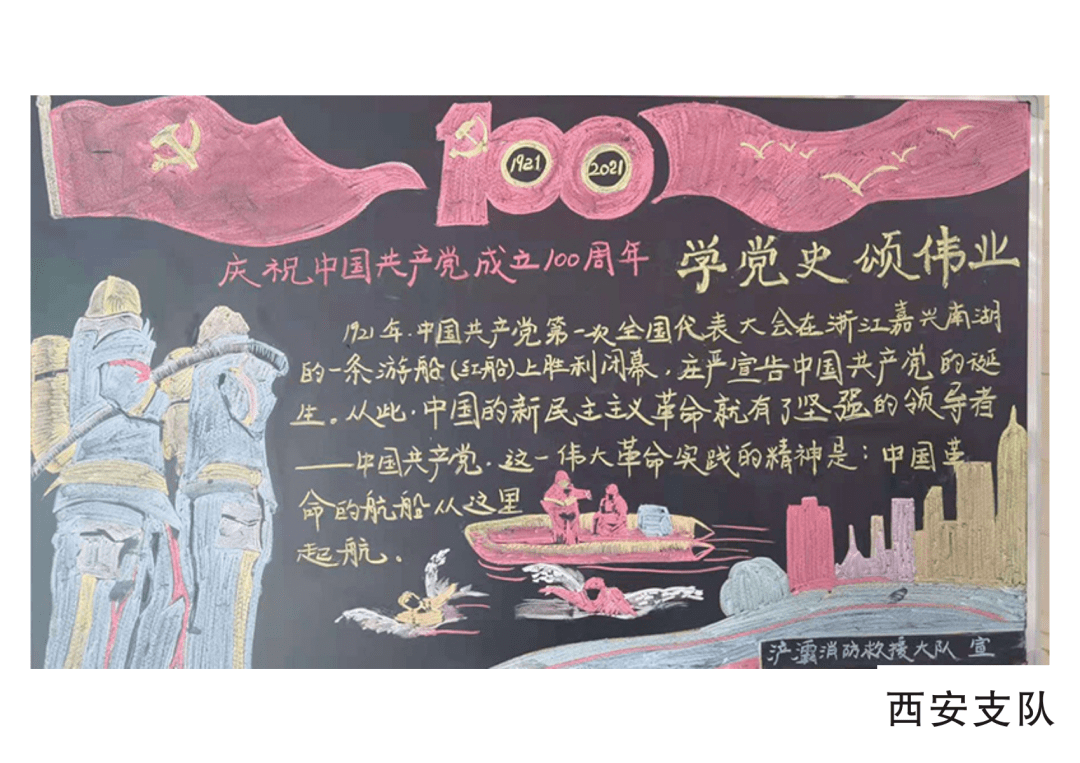 1921
2021
庆祝中国共产党成立100周年
学党史 颂伟业
1921年.中国共产党第一次全国代表大会在浙江嘉兴南湖
的一条游船(红船)上胜利闭幕.庄严宣告中国共产党的诞
生。从此.中国的新民主主义革命就有了坚强的领导者
——中国共产党.这一伟大革命实践的精神是:中国革
命的航船从这里
起航.
浐灞消防救援大队 宣
西安支队